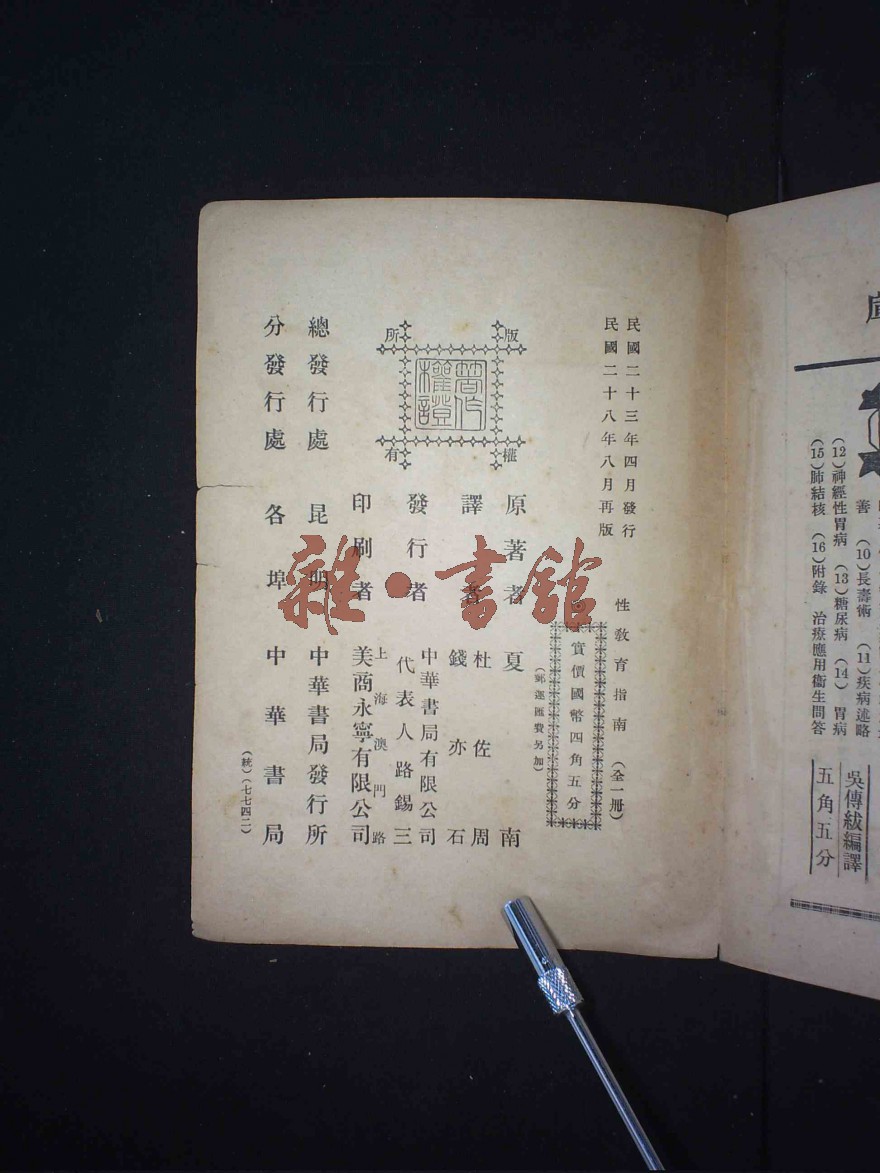 民國二十三年四月發行
民國二十八年八月再版
性教育指南（全一冊）
實價國幣四角五分
（郵運匯費另加）
版權所有
著作權證
原著者 夏南
譯者 杜佐周
錢亦石
發行者 中華書局有限公司
代表人路錫三
印刷者 上海澳門路
美商永寧有限公司
總發行處 昆明 中華書局發行所
分發行處 各埠 中華書局
（統）（七七四二）
雜·書館
善 (10)長壽術 (11)疾病述略
(12)神經性胃病 (13)糖尿病 (14)胃病
(15)肺結核 (16)附錄 治療應用衞生問答
吳傳紱編譯
五角五分